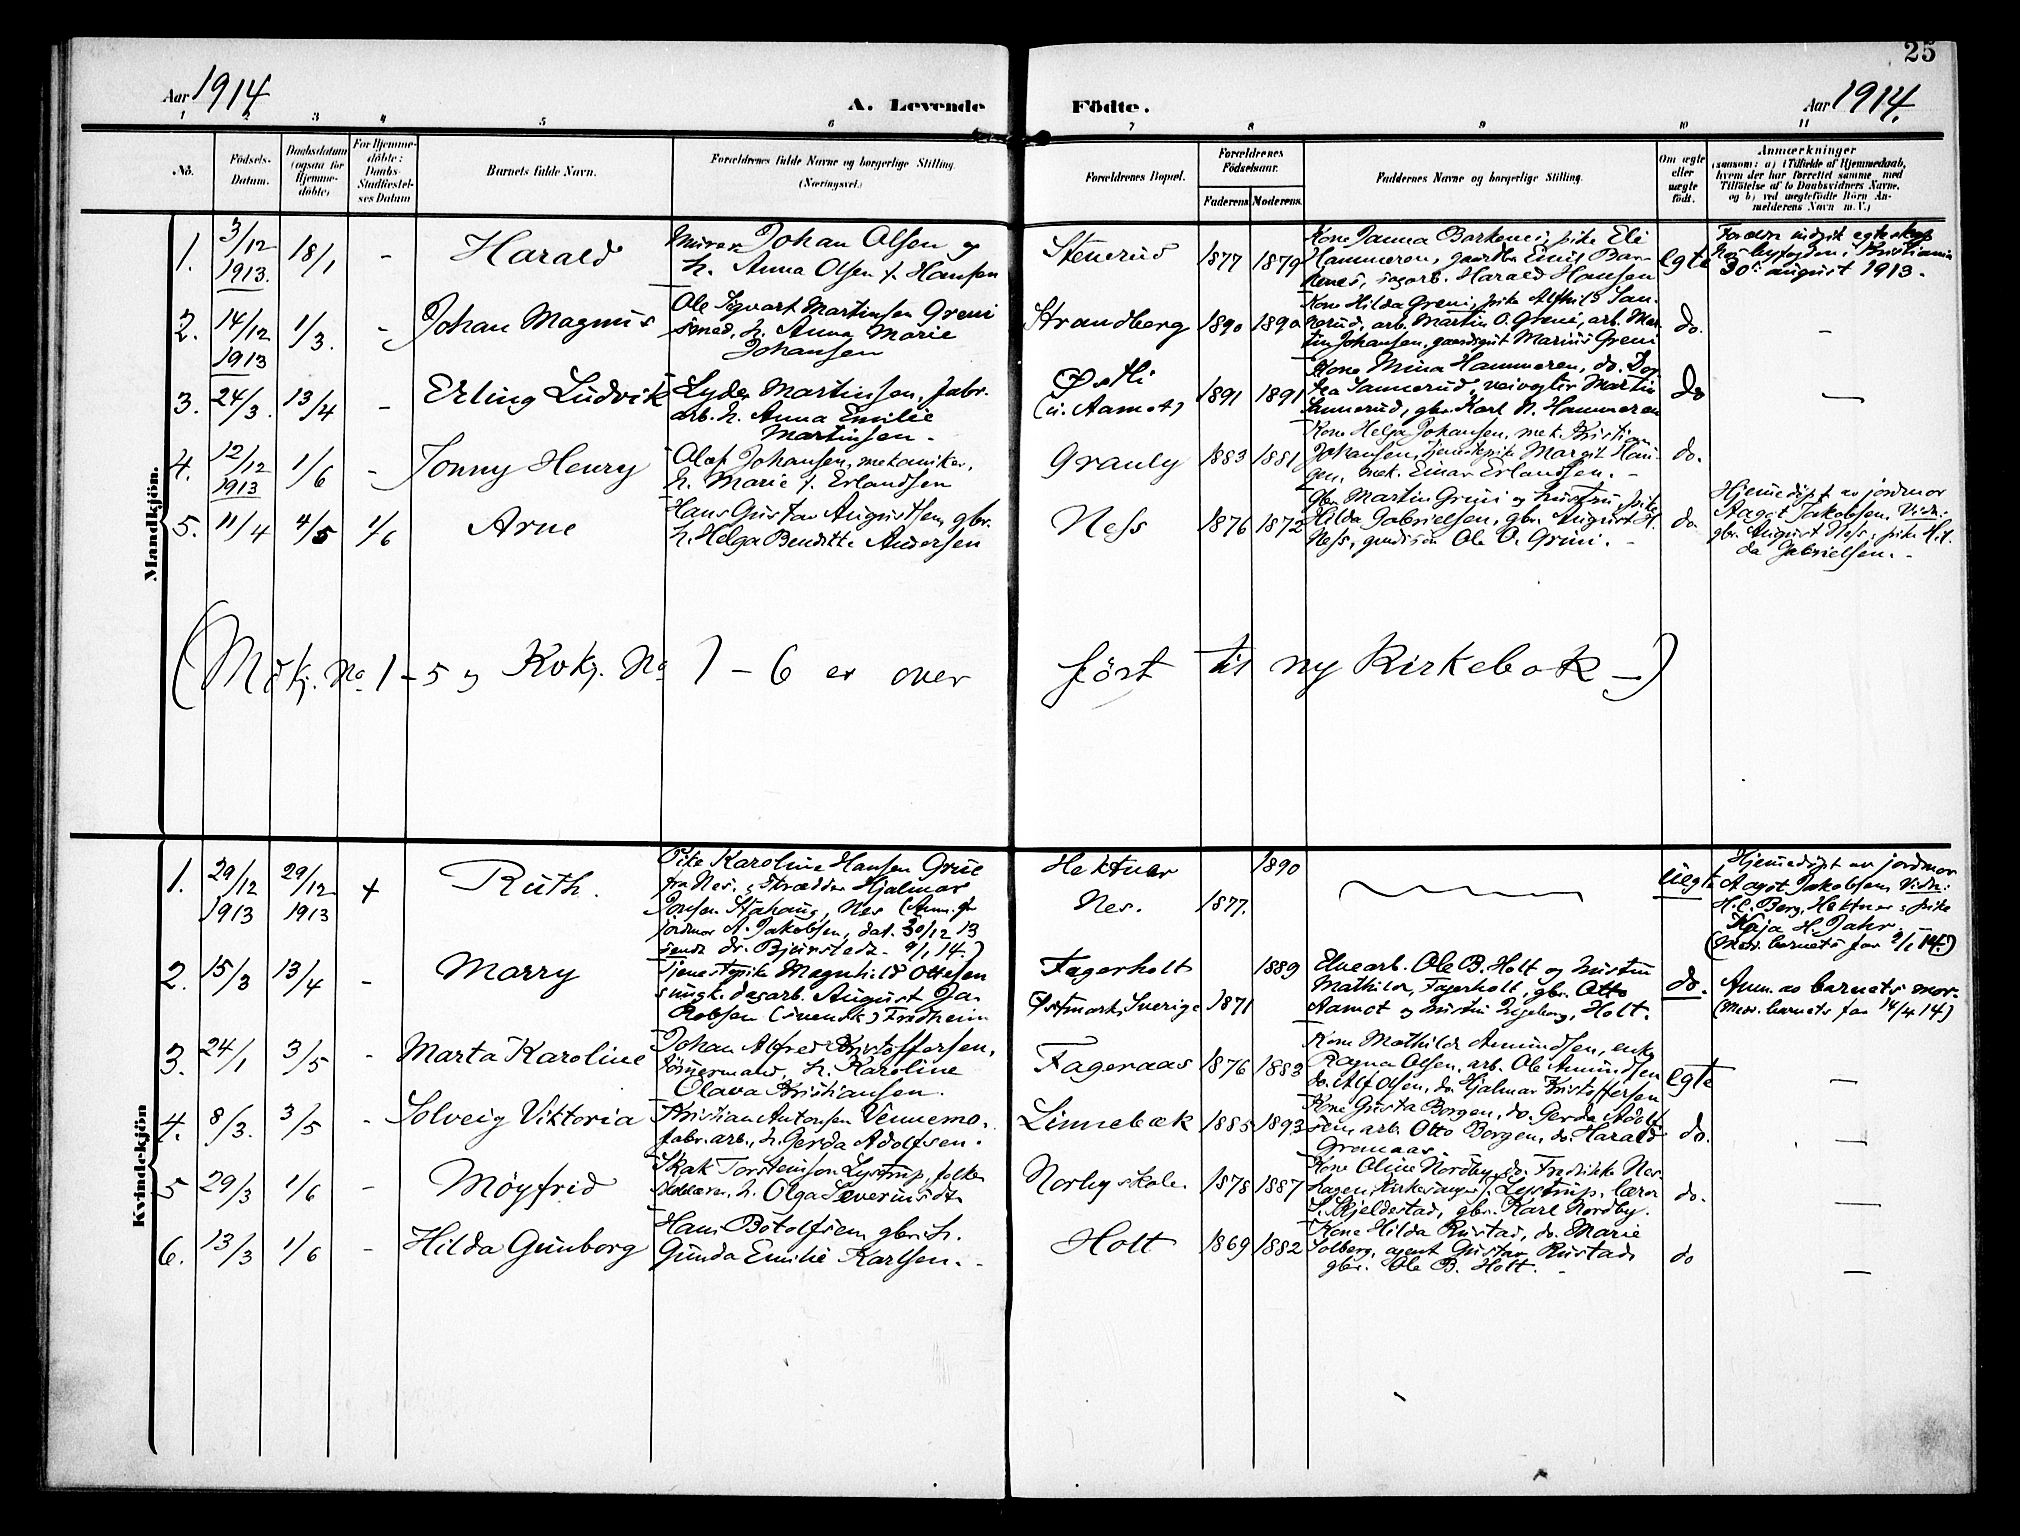 25
Aar 1914
A. Levende
Födte.
Aar 1914.
1 2 3 4 5 6 7 8 9 10 11
No.
Födsels-
Datum.
Daabsdatum
(ogsaa for
Hjemme-
döbte)
For Hjemme-
döbte:
Daabs-
Stadfæstel-
ses Datum
Barnets fulde Navn.
Forældrenes fulde Navne og borgerlige Stilling.
(Næringsvei.)
Forældrenes Bopæl.
Forældrenes
Födselsaar.
Faderens
Moderens
Faddernes Navne og borgerlige Stilling.
Om ægte
eller
uægte
födt.
Anmærkninger
(saasom: a) i Tilfælde af Hjemmedaab,
hvem der har forrettet samme, med
Tilföielse af to Daabsvidners Navne,
og b) ved uægtefödte Börn An-
melderens Navn m. V.)
Mandkjön.
1.
3/12
1913.
18/1
-
Harald
Murer Johan Olsen og
h. Anna Olsen f. Hansen
Stenerud
1877
1879
Kone Janna Barkenes, pike Eli
Hammeren, gaardbr. Emil Bar-
kenes, sagarb. Harald Hansen
egte
30te august 1913.
2.
14/12
1913
1/3.
-
Johan Magnus
Ole Sigvart Martinsen Greni
smed, h. Anna Marie
Johansen
Strandberg
1890
1890
Kone Hilda Greni, pike Alfhild San-
nerud, arb. Martin O. Greni, arb. Mar-
tin Johansen, gaardgut Marius Greni
do.
-
3.
24/3.
13/4
-
Erling Ludvik
Lyder Martinsen, fabr.
arb. h. Anna Emilie
Martinsen -
Østli
(u. Aamot)
1891
1891
Kone Mina Hammeren, do. Dor-
tea Sannerud, veivogter Martin
Sannerud, gbr. Karl N. Hammeren
do
-
4.
12/12
1913
1/6
-
Jonny Henry
Olaf Johansen, mekaniker,
h. Marie f. Erlandsen
Granly
1883
1881
Kone Helga Johansen, mek. Kristian
Johansen, tjenestpike Margit Hau-
gen, mek. Einar Erlandsen. -
do.
5.
11/4
4/5
1/6
Arne
Hans Gustav Augustsen, gbr.
h. Helga Benditte Andersen
Ness
1876
1872
gbr. Martin Greni og hustru, pike
Hilda Gabrielsen, gbr. August H.
Ness, Ole O. Greni. -
do.
Hjemedøpt av jordmor
Aagot Jakobsen. Vidn.:
gbr. August Ness, pike Hil-
da Gabrielsen. -
(Mdkj. No. 1 - 5 og Kvkj. No 1 - 6 er over
ført til ny Kirkebok -)
Kvindekjön
1.
29/12
1913
29/12
1913
+
Ruth.
Pike Karoline Hansen Grue
fra Nes, skrædder Hjalmar
Jonsen Stahaug, Nes (Anm. fra
jordmor A. Jakobsen, dat. 30/12 13
sendt dr. Bjørnstedt 9/1 14.)
Hektner
Nes.
1877.
1890
uegte
Hjemedøpt av jordmor
Aagot Jakobsen. Vidn.:
H. C. Berg, Hektner, pike
Kaja H. Jahr. -
(Med. barnets far 9/1 14.)
2.
15/3
13/4
-
Marry
Tjenestepike Magnhild Ottesen
s. ungk. dagarb. August Ja-
kobsen (svensk) Fredheim
Fagerholt
Østmark, Sverige
1871
1889
Elvearb. Ole B. Holt og hustru
Mathilde, Fagerholt, gbr. Otto
Aamot og hustru Ingeborg, Holt.
do.
Anm. av barnets mor.
(Med. barnets far 14/4 14)
3.
24/1
3/5
-
Marta Karoline
Johan Alfred Kristoffersen,
tømmermand, h. Karoline
Olava Kristiansen.
Fageraas
1876
1883
Kone Mathilde Amundsen, enke
Ragna Olsen, arb. Ole Amundsen
do. Alf Olsen, do. Hjalmar Kristoffersen
egte
-
4.
8/3.
3/5
-
Solveig Viktoria
Kristian Antonsen Vennemo,
fabr. arb., h. Gerda Adolfsen.
Linnebæk
1885
1893
Kone Gusta Borgen, do. Gerda Adolf-
sen, arb. Otto Borgen, do. Harald
Gromaas.
do.
-
5
29/3
1/6
-
Möyfrid
Skak Torsteinson Lystrup, folke-
skolelærer, h. Olga Severinsdt.
Norby skole.
1878
1887
Kone Oline Nordby, do. Fredrikke Nes-
hagen, Kirkesanger J. Lystrup, lærer
S. Skjeldestad, gbr. Karl Nordby.
do.
-
6.
13/3
1/6
-
Hilda Gunborg
Hans Botolfsen, gbr. h.
Gunda Emilie Karlsen. -
Holt
1869
1882
Kone Hilda Rustad, do. Marie
Solberg, agent Gustav Rustad,
gbr. Ole B. Holt. -
do
-